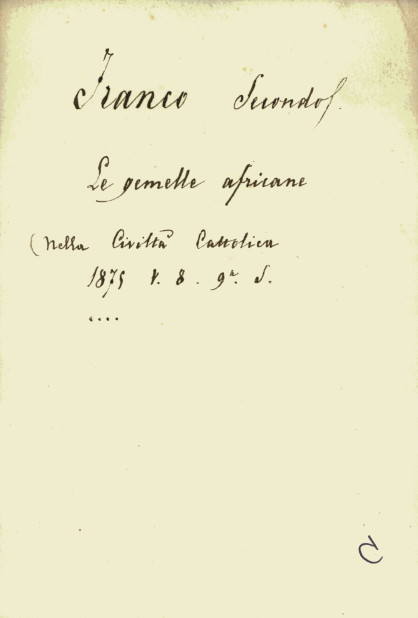 Franco Secondo f.
Le gemelle africane
(Nella Civiltà Cattolica
1875 V. 8. 9ª. S.
....
C